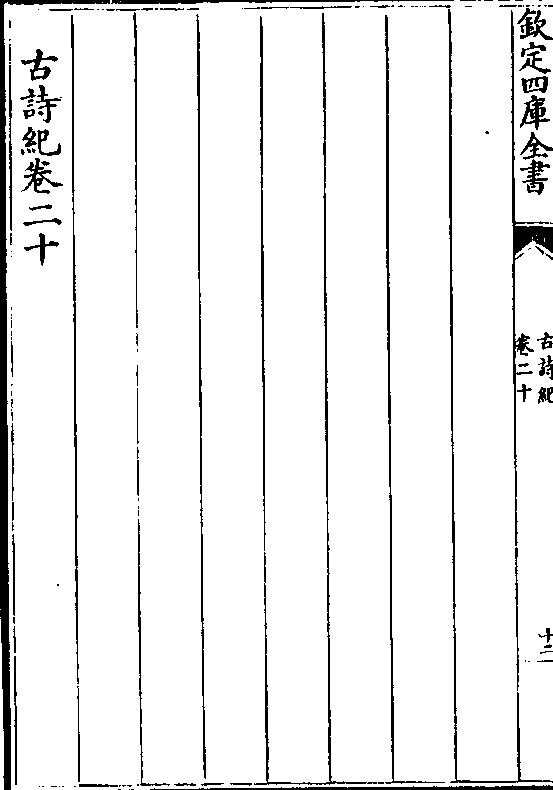 欽定四庫全書
古詩紀
卷二十
十二
古詩紀卷二十